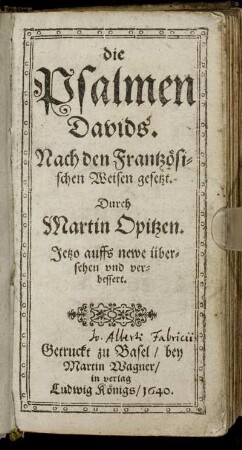 die
Psalmen
Davids.
Nach den Frantzösi-
schen Weisen gesetzt.
Durch
Martin Opitzen.
Jetzo auffs newe über-
sehen vnd ver-
bessert.
Jo. Alberti Fabricii
Getruckt zu Basel / bey
Martin Wagner /
in verlag
Ludwig Königs / 1640.